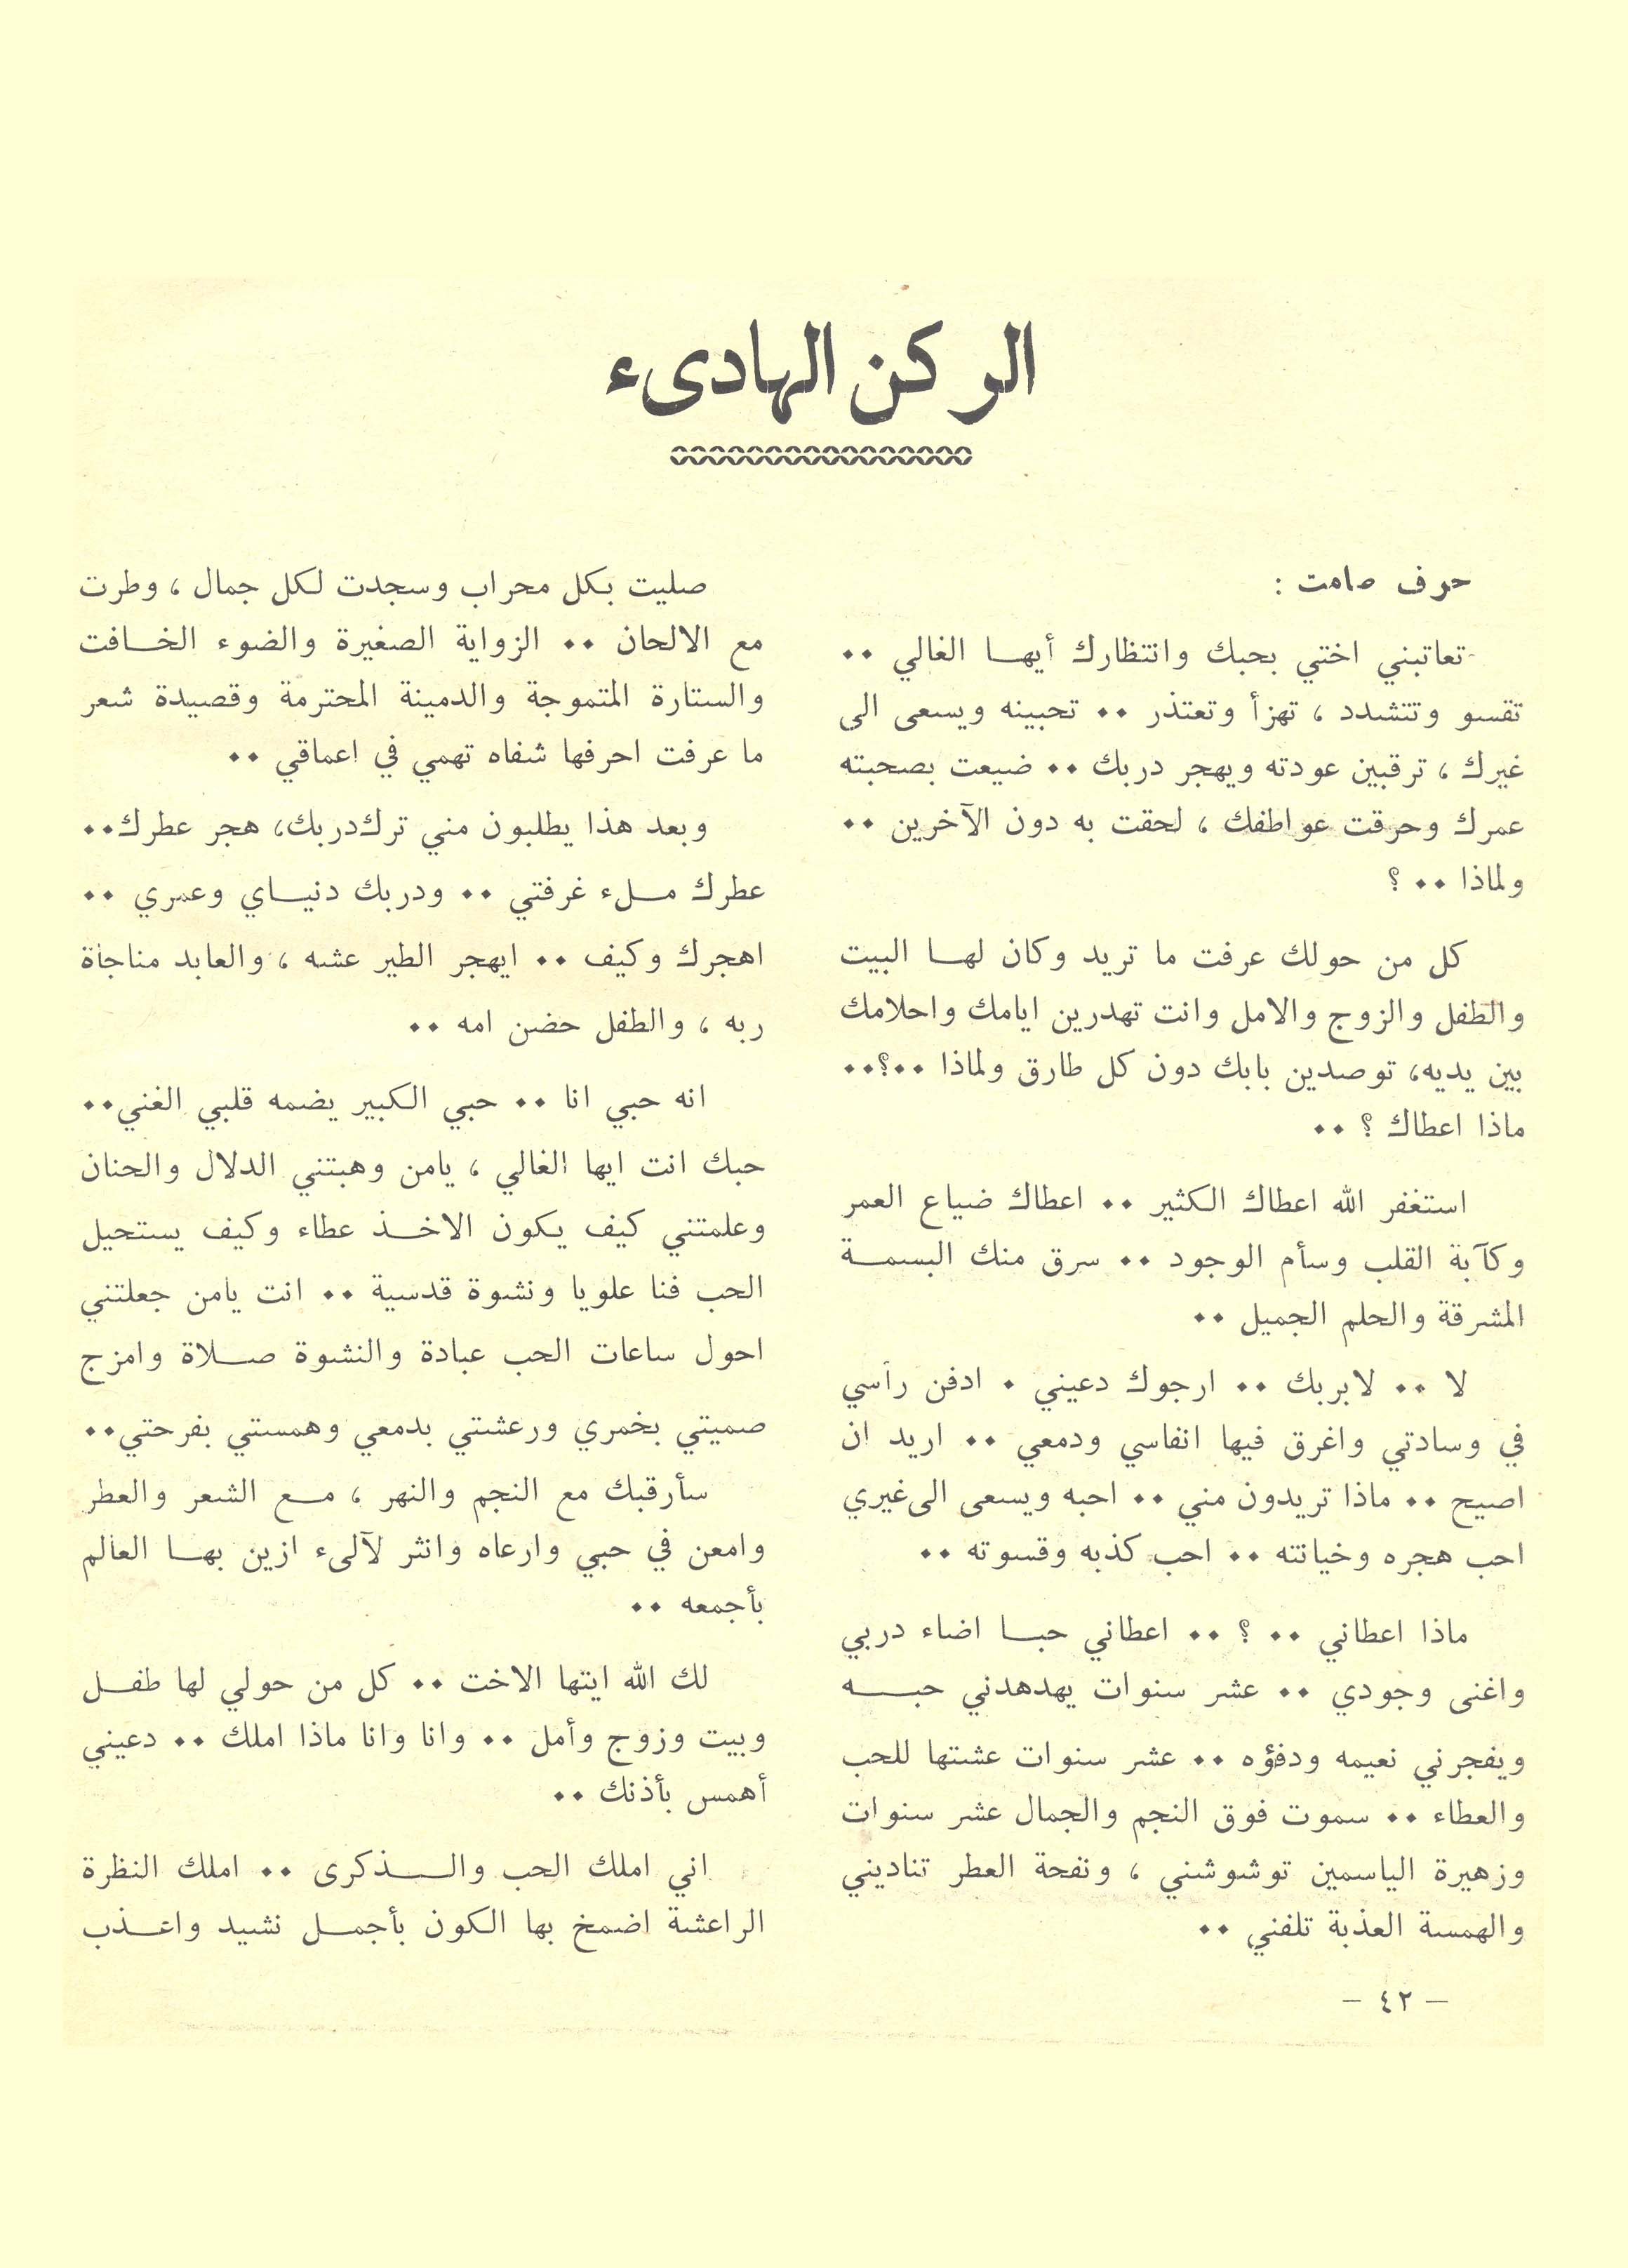 الركن الهادىء
حرف صامت :
تعاتبني اختي بحبك وانتظارك أيها الغالي ..
تقسو وتتشدد ، تهزأ وتعتذر .. تحبينه ويسعى الى
غيرك ، ترقبين عودته ويهجر دربك .. ضيعت بصحبته
عمرك وحرقت عواطفك ، لحقت به دون الآخرين ..
ولماذا .. ؟
كل من حولك عرفت ما تريد وكان لها البيت
والطفل والزوج والامل وانت تهدرين ايامك واحلامك
بين يديه، توصدين بابك دون كل طارق ولماذا ..؟..
ماذا اعطاك ؟ ..
استغفر الله اعطاك الكثير .. اعطاك ضياع العمر
وكآبة القلب وسأم الوجود .. سرق منك البسمة
المشرقة والحلم الجميل ..
لا .. لابربك .. ارجوك دعيني . ادفن رأسي
في وسادتي واغرق فيها انفاسي ودمعي .. اريد ان
اصيح .. ماذا تريدون مني .. احبه ويسعى الى غيري
احب هجره وخيانته .. احب كذبه وقسوته ..
ماذا اعطاني .. ؟ .. اعطاني حبا اضاء دربي
واغنى وجودي .. عشر سنوات يهدهدني حبه
ويفجرني نعيمه ودفؤه .. عشر سنوات عشتها للحب
والعطاء .. سموت فوق النجم والجمال عشر سنوات
وزهيرة الياسمين توشوشني ، ونفحة العطر تناديني
والهمسة العذبة تلفني ..
صليت بكل محراب وسجدت لكل جمال ، وطرت
مع الالحان .. الزواية الصغيرة والضوء الخافت
والستارة المتموجة والدمينة المحترمة وقصيدة شعر
ما عرفت احرفها شفاه تهمي في اعماقي ..
وبعد هذا يطلبون مني ترك دربك، هجر عطرك..
عطرك ملء غرفتي .. ودربك دنياي وعمري ..
اهجرك وكيف .. ايهجر الطير عشه ، والعابد مناجاة
ربه ، والطفل حضن امه ..
انه حبي انا .. حبي الكبير يضمه قلبي الغني..
حبك انت ايها الغالي ، يامن وهبتني الدلال والحنان
وعلمتني كيف يكون الاخذ عطاء وكيف يستحيل
الحب فنا علويا ونشوة قدسية .. انت يامن جعلتني
احول ساعات الحب عبادة والنشوة صلاة وامزج
صميتي بخمري ورعشتي بدمعي وهمستي بفرحتي..
سأرقبك مع النجم والنهر ، مع الشعر والعطر
وامعن في حبي وارعاه وانثر لآلىء ازين بها العالم
بأجمعه ..
لك الله ايتها الاخت .. كل من حولي لها طفل
وبيت وزوج وأمل .. وانا وانا ماذا املك .. دعيني
أهمس بأذنك ..
اني املك الحب والذكرى .. املك النظرة
الراعشة اضمخ بها الكون بأجمل نشيد واعذب
– ٤٢ –